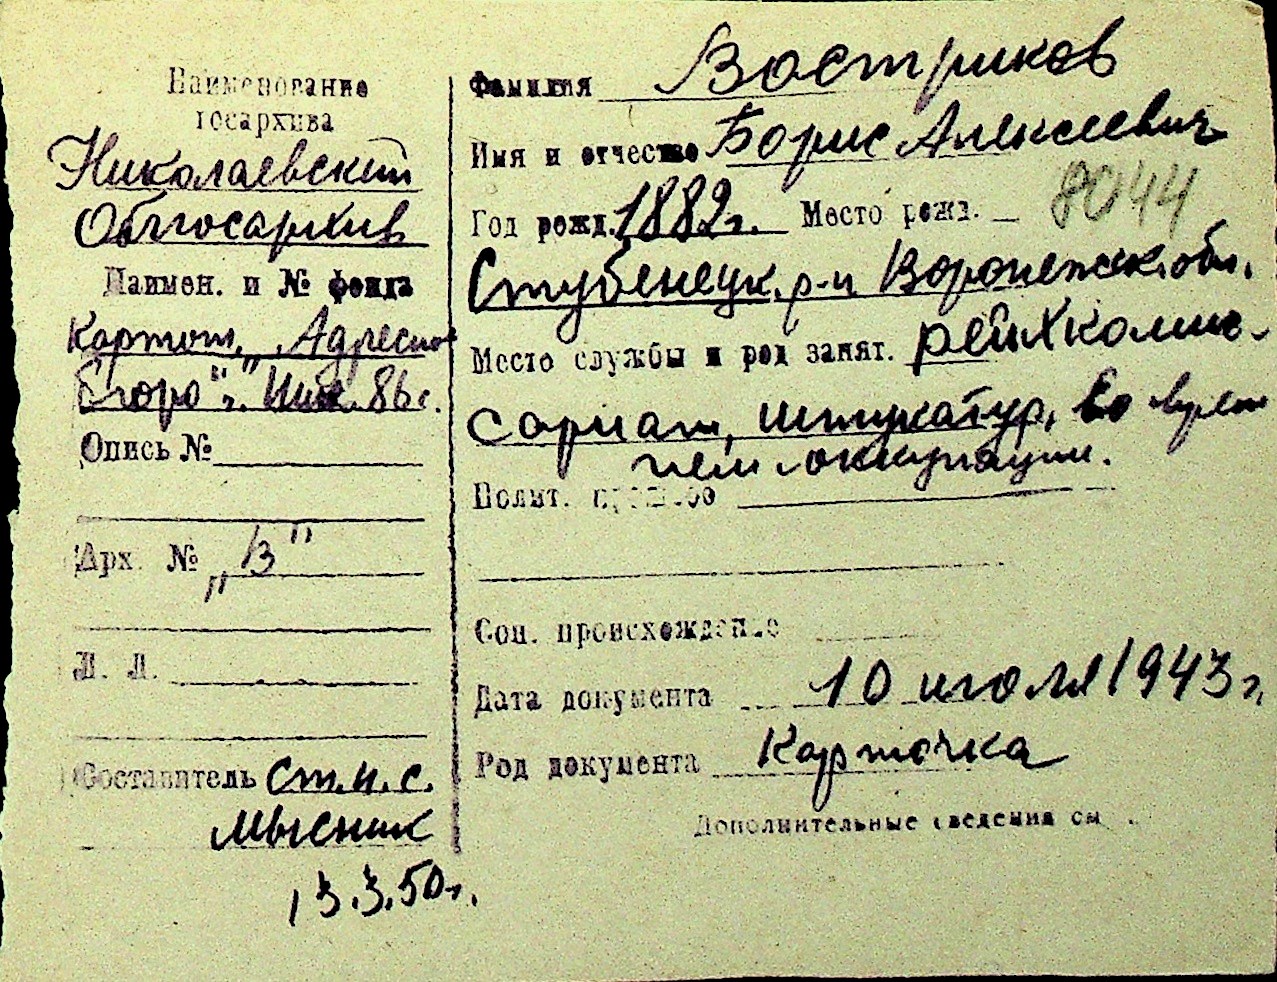 Наименование
госархива
Николаевский
Облгосархив
Наимен. и № фонда
Картот. „Адресное
бюро". 86 г.
Опись №
Арх. № „В"
Л. Л.
Составитель Ст.н.с.
Мысник
13.3.50г.
Фамилия Востриков
Имя и отчество Борис Алексеевич
Год рожд. 1882г. Место рожд. 8044
Стубенецк. р-н Воронежск. обл.
Место службы и род занят. рейхкомис-
сариат, штукатур, во время
нем. оккупации.
Полит. прошлое
Соц. происхождение
Дата документа 10 июля 1943г.
Род документа Карточка
Дополнительные сведения см.